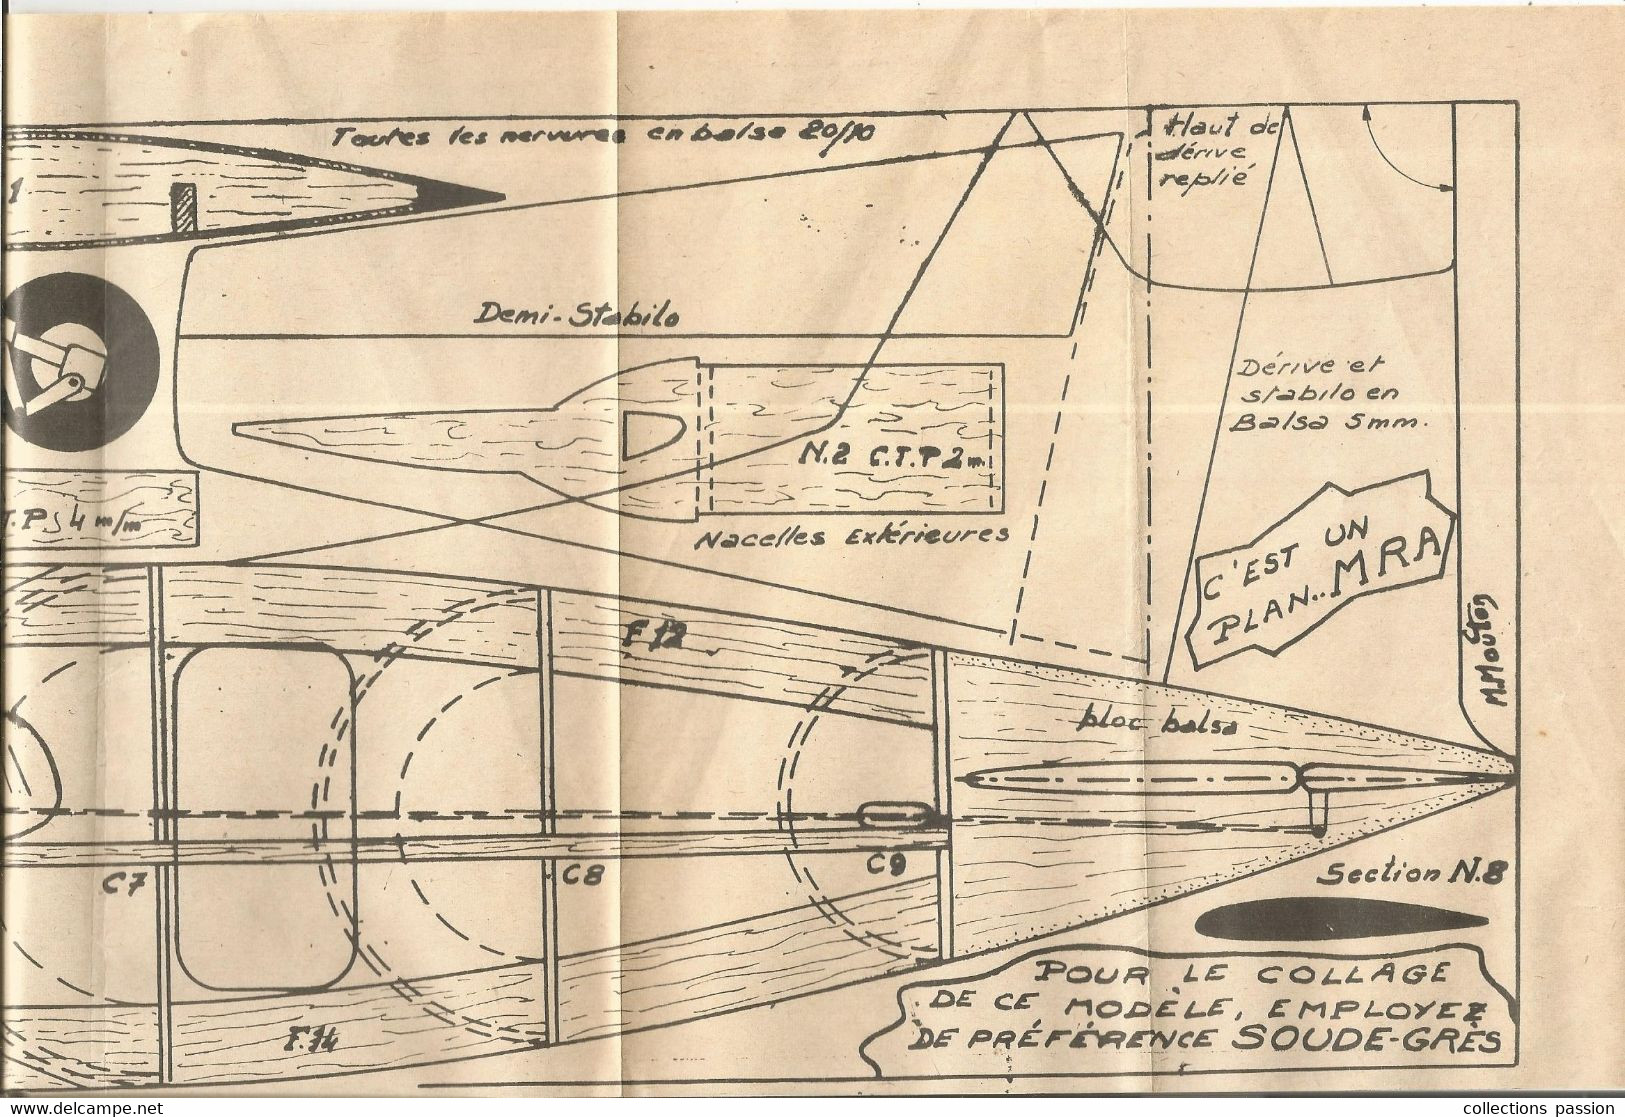 Toutes les nervures en balsa 20/10
Haut de
dérive
replié
1
Demi-Stabilo
Dérive et
stabilo en
Balsa 5mm.
N.2 C.T.P 2 m.
T.P. 4 m/m
Nacelles Extérieures
C'EST UN
PLAN.. MRA
M. Mouton
F 12
bloc balsa
C7
C8
C9
Section N.8
F.14
POUR LE COLLAGE
DE CE MODÈLE, EMPLOYEZ
DE PRÉFÉRENCE SOUDE-GRÈS
delcampe.net
collections passion